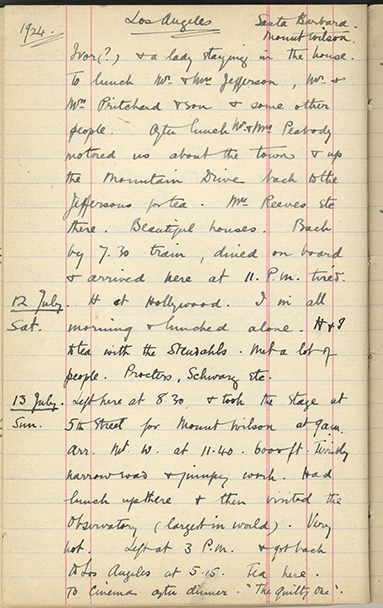 1924. Los Angeles Santa Barbara.
Mount Wilson.
Ivor(?) & a lady staying in the house.
To lunch Mr. & Mrs Jefferson, Mr. &
Mrs Pritchard & son & some other
people. After lunch Mr & Mrs Peabody
motored us about the town & up
the Mountain Drive back to the
Jeffersons for tea. Mrs Reeves etc
there. Beautiful houses. Back
by 7.30 train, dined on board
& arrived here at 11. P.M. tired.
12 July. H at Hollywood. I in all
Sat. morning & lunched alone. H & I
to tea with the Stendahls. Met a lot of
people. Procters, Schwarz etc.
13 July. Left here at 8.30 & took the stage at
Sun. 5th Street for Mount Wilson at 9 am.
arr. Mt. W. at 11.40. 6000 ft. Twisty
narrow road & jumpy work. Had
lunch up there & then visited the
Observatory (largest in world). Very
hot. Left at 3 P.M. & got back
to Los Angeles at 5.15. Tea here.
To Cinema after dinner. "The Guilty One".